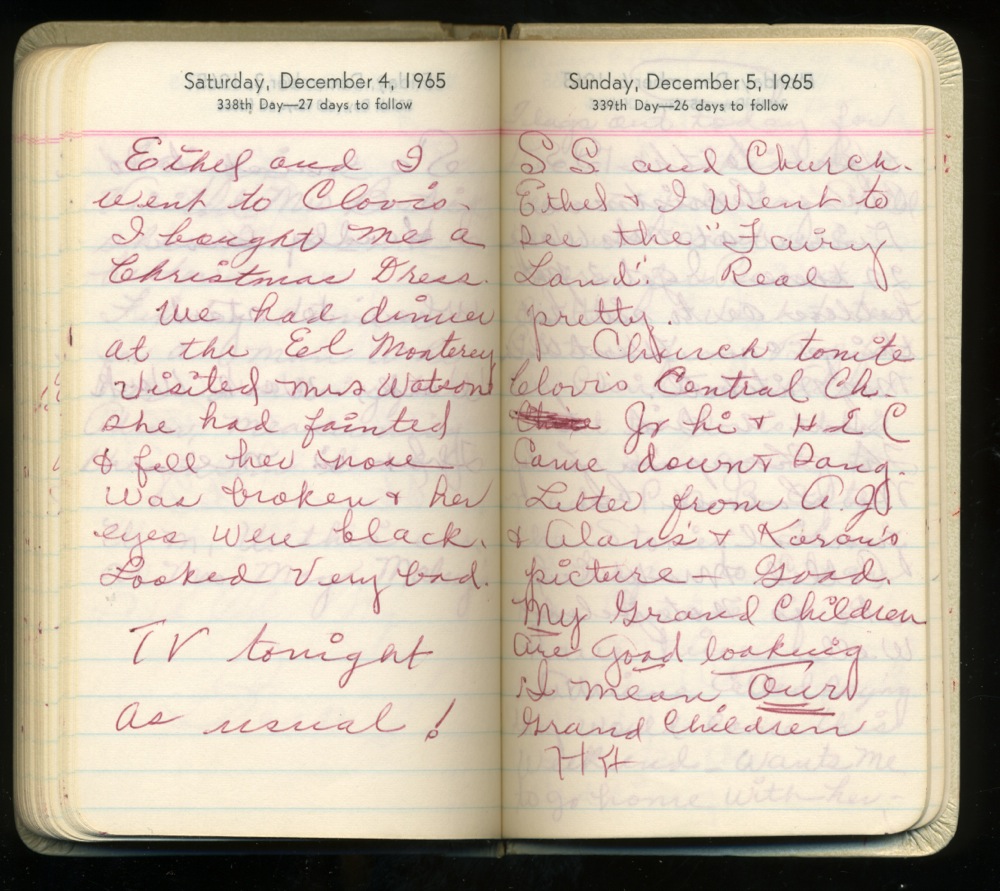 Saturday, December 4, 1965
338th Day—27 days to follow
Ethel and I
went to Clovis.
I bought me a
Christmas Dress.
We had dinner
at the Eel Monterey
visited Mrs Watson
she had fainted
& fell her nose
was broken & her
eyes were black.
Looked very bad.
TV tonight
as usual!
Sunday, December 5, 1965
339th Day—26 days to follow
S S and Church.
Ethel & I Went to
see the "Fairy
Land". Real
pretty.
Church tonite
Clovis Central Ch.
Jr hi & H I C
Came down & sang.
Letter from A.J.
& Alan's & Karan's
picture - Good.
My Grand Children
are Good looking
I mean Our
Grand Children
HH
Wants me
to go home with her.